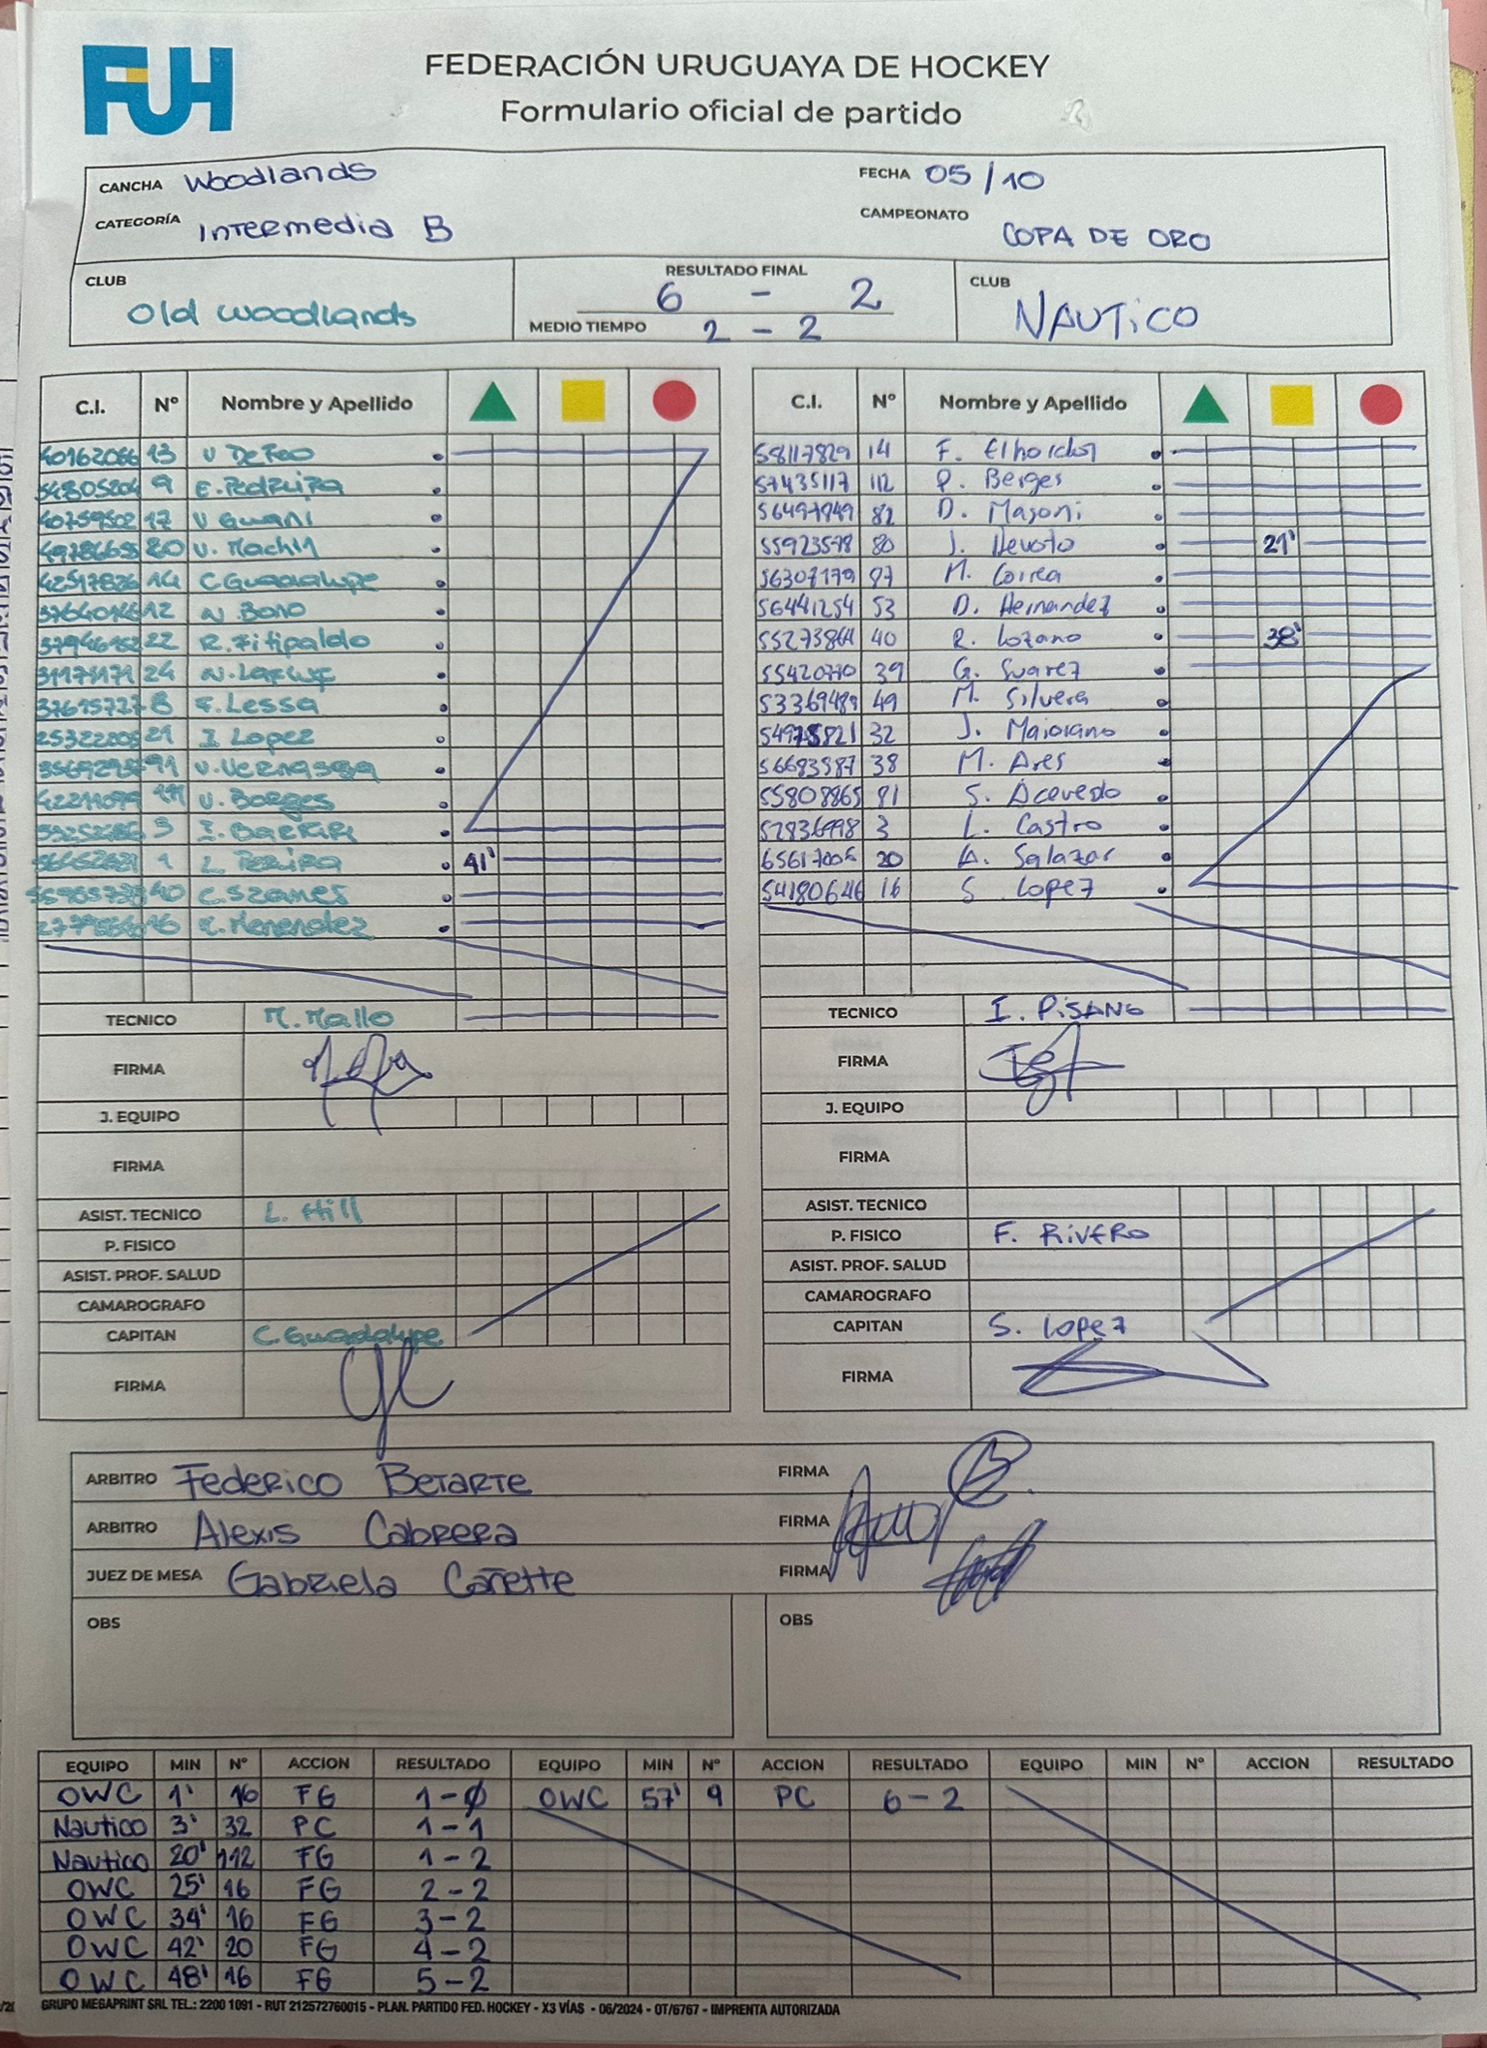 FUH
FEDERACIÓN URUGUAYA DE HOCKEY
Formulario oficial de partido
CANCHA Woodlands FECHA 05/10
CATEGORÍA Intermedia B CAMPEONATO COPA DE ORO
CLUB Old Woodlands RESULTADO FINAL 6 - 2 CLUB NAUTICO
MEDIO TIEMPO 2 - 2
C.I. Nº Nombre y Apellido C.I. Nº Nombre y Apellido
13 V. De Feo 58117829 14 F.
9 E. Pedreira 57435117 112 P. Berges
17 V Guani 82 D. Masoni
20 V. Machin 80 J. Devoto 21'
14 C. Guadalupe 56307179 97 M. Correa
12 N. Bono 56441254 53 D. Hernandez
22 R. Fitipaldo 40 R. Lozano 38'
31171171 24 39 G. Suarez
8 F. Lessa 53369489 49 M. Silvera
21 I. Lopez 32 J. Maiorano
V. Vernassa 38 M. Ares
V. Borges 55808865 81 S. Acevedo
3 I. 3 L. Castro
1 L. Pereira 41' 65617006 20 A. Salazar
40 C. Szames 54180646 16 S. Lopez
16 Menendez
TECNICO M. Mallo TECNICO I. PISANO
FIRMA FIRMA
J. EQUIPO J. EQUIPO
FIRMA FIRMA
ASIST. TECNICO L. Hill ASIST. TECNICO
P. FISICO P. FISICO F. RIVERO
ASIST. PROF. SALUD ASIST. PROF. SALUD
CAMAROGRAFO CAMAROGRAFO
CAPITAN C. Guadalupe CAPITAN S. Lopez
FIRMA FIRMA
ARBITRO Federico Betarte FIRMA
ARBITRO Alexis Cabrera FIRMA
JUEZ DE MESA Gabriela Cañette FIRMA
OBS OBS
EQUIPO MIN Nº ACCION RESULTADO EQUIPO MIN Nº ACCION RESULTADO EQUIPO MIN Nº ACCION RESULTADO
OWC 1' 16 FG 1-0 OWC 57' 9 PC 6-2
Nautico 3' 32 PC 1-1
Nautico 20' 112 FG 1-2
OWC 25' 16 FG 2-2
OWC 34' 16 FG 3-2
OWC 42' 20 FG 4-2
OWC 48' 16 FG 5-2
GRUPO MEGAPRINT SRL TEL.: 2200 1091 - RUT 212572760015 - PLAN. PARTIDO FED. HOCKEY - X3 VÍAS - 06/2024 - OT/6767 - IMPRENTA AUTORIZADA